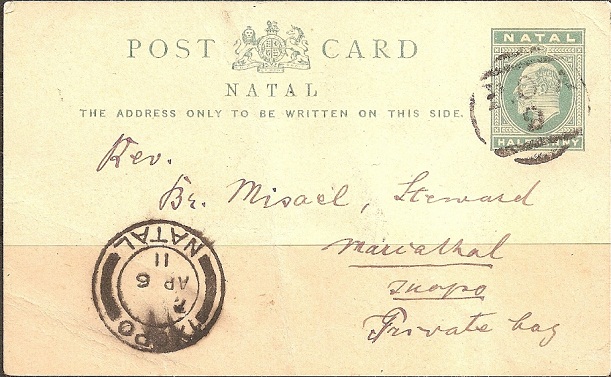 POST CARD
NATAL
THE ADDRESS ONLY TO BE WRITTEN ON THIS SIDE.
NATAL
HALFPENNY
Rev.
Br. Misael, Steward
Mariathal
Ixopo
Private bag
IXOPO
AP 6
11
NATAL